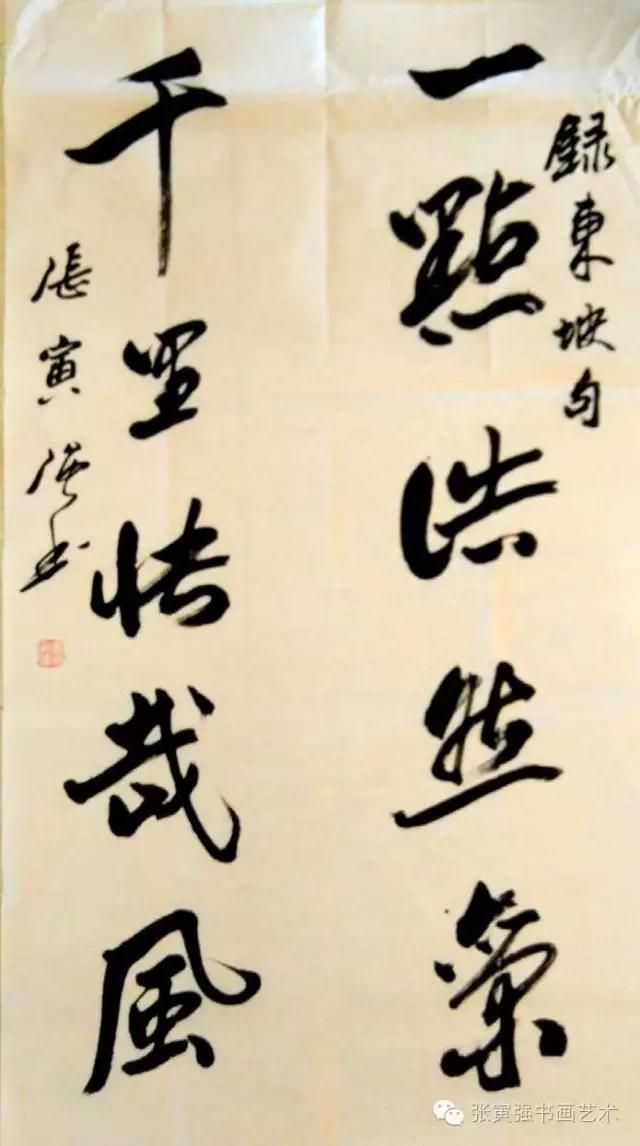 録東坡句
一點浩然氣
千里快哉風
張寅强書
张寅强书画艺术